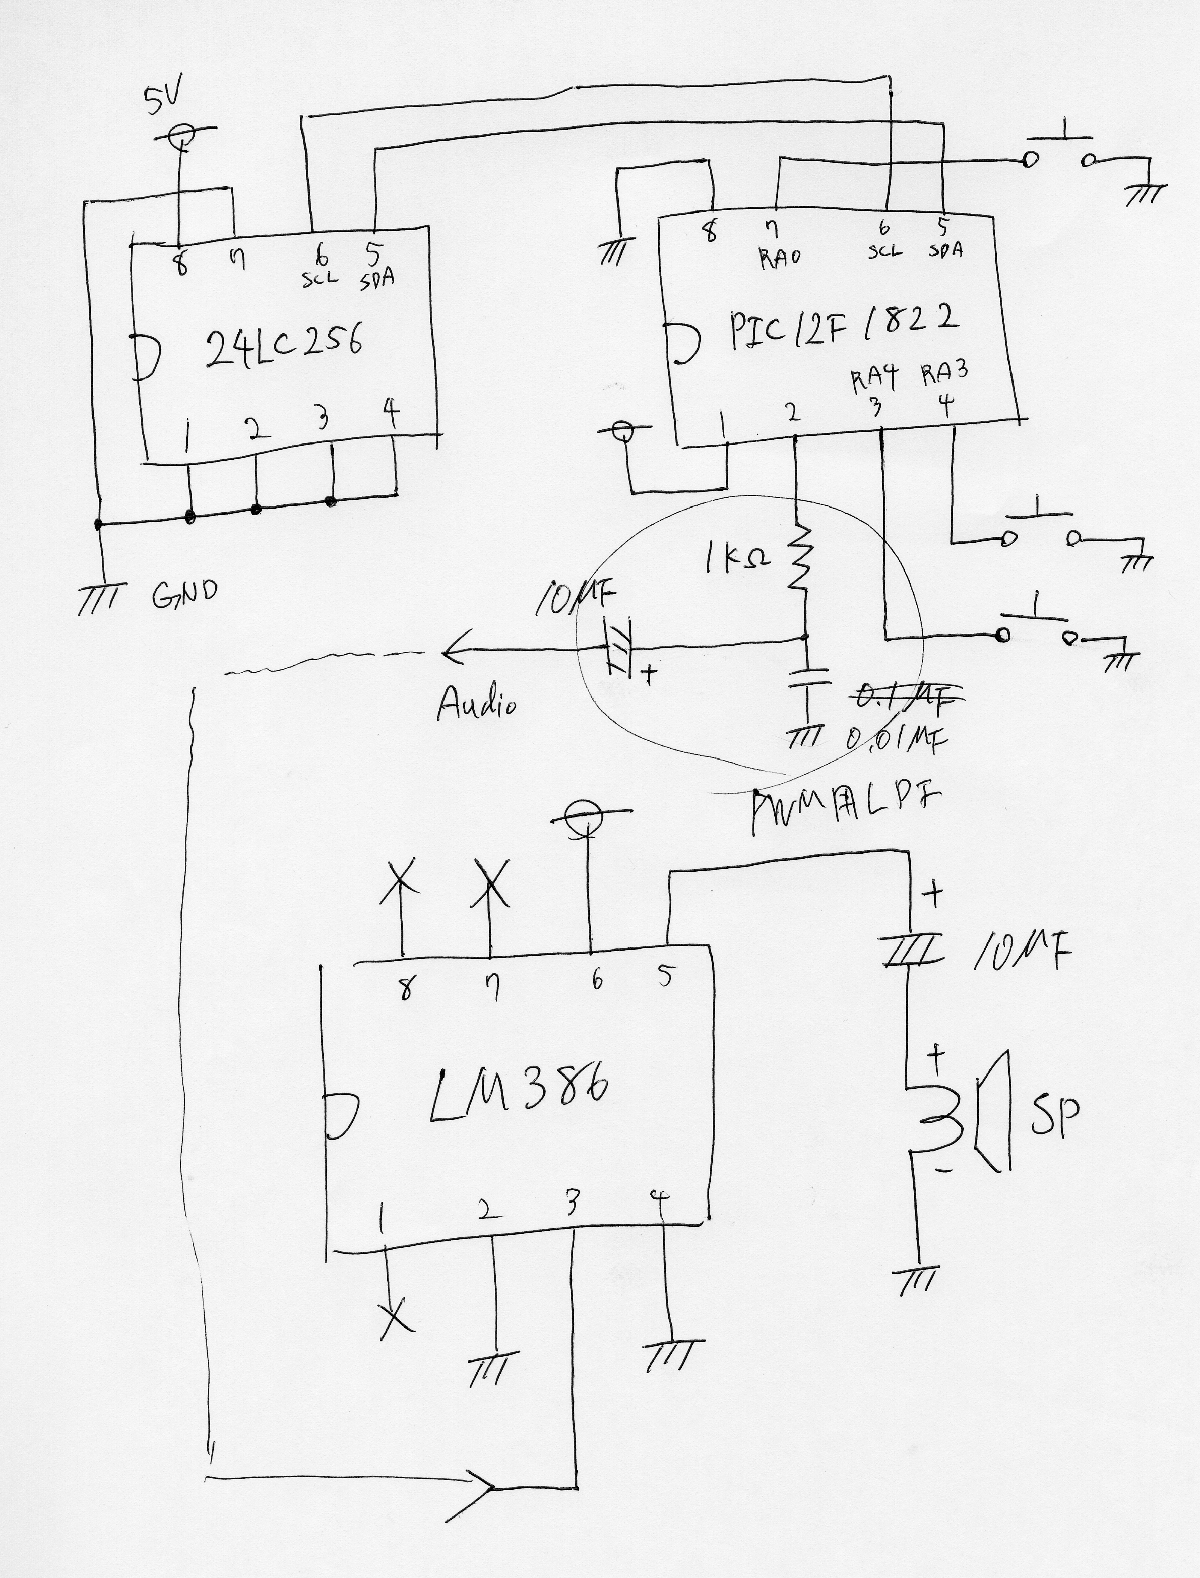 5V
8 7 6 5
SCL SDA
24LC256
1 2 3 4
GND
8 7 6 5
RA0 SCL SDA
PIC12F1822
RA4 RA3
1 2 3 4
1KΩ
10μF
+
Audio
0.1μF
0.01μF
PWM用LPF
8 7 6 5
LM386
1 2 3 4
+
10μF
+
SP
-